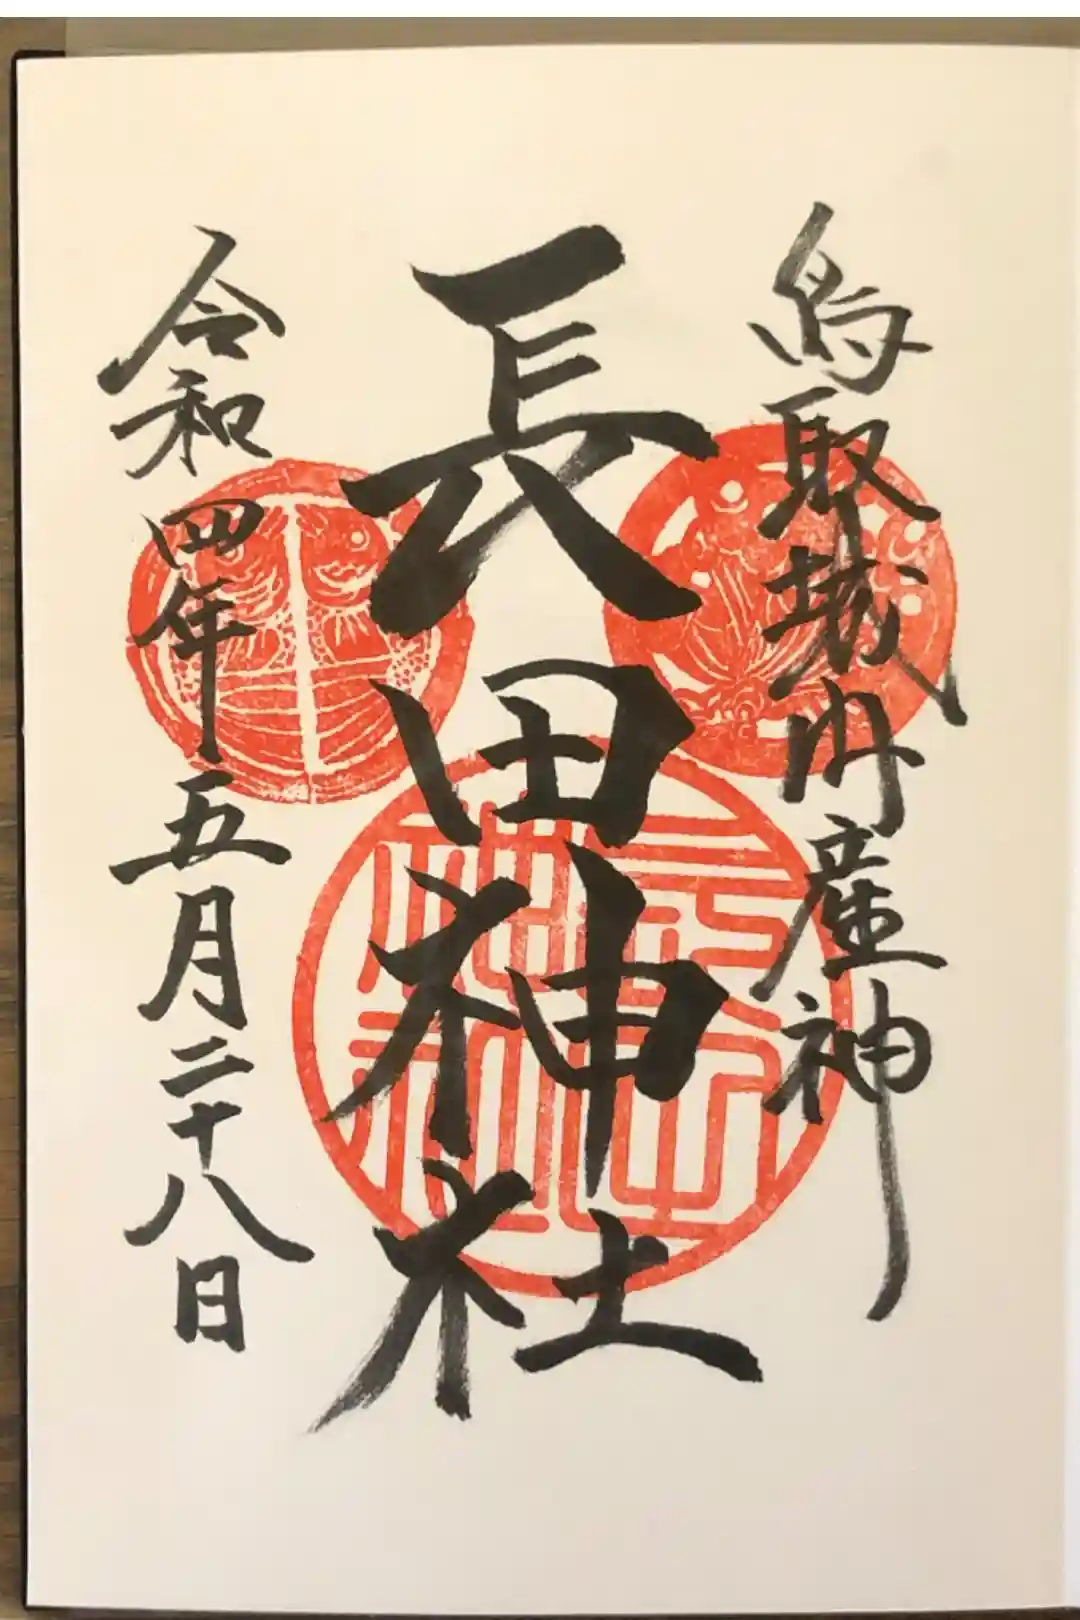 鳥取城内産神
長田神社
令和四年五月二十八日